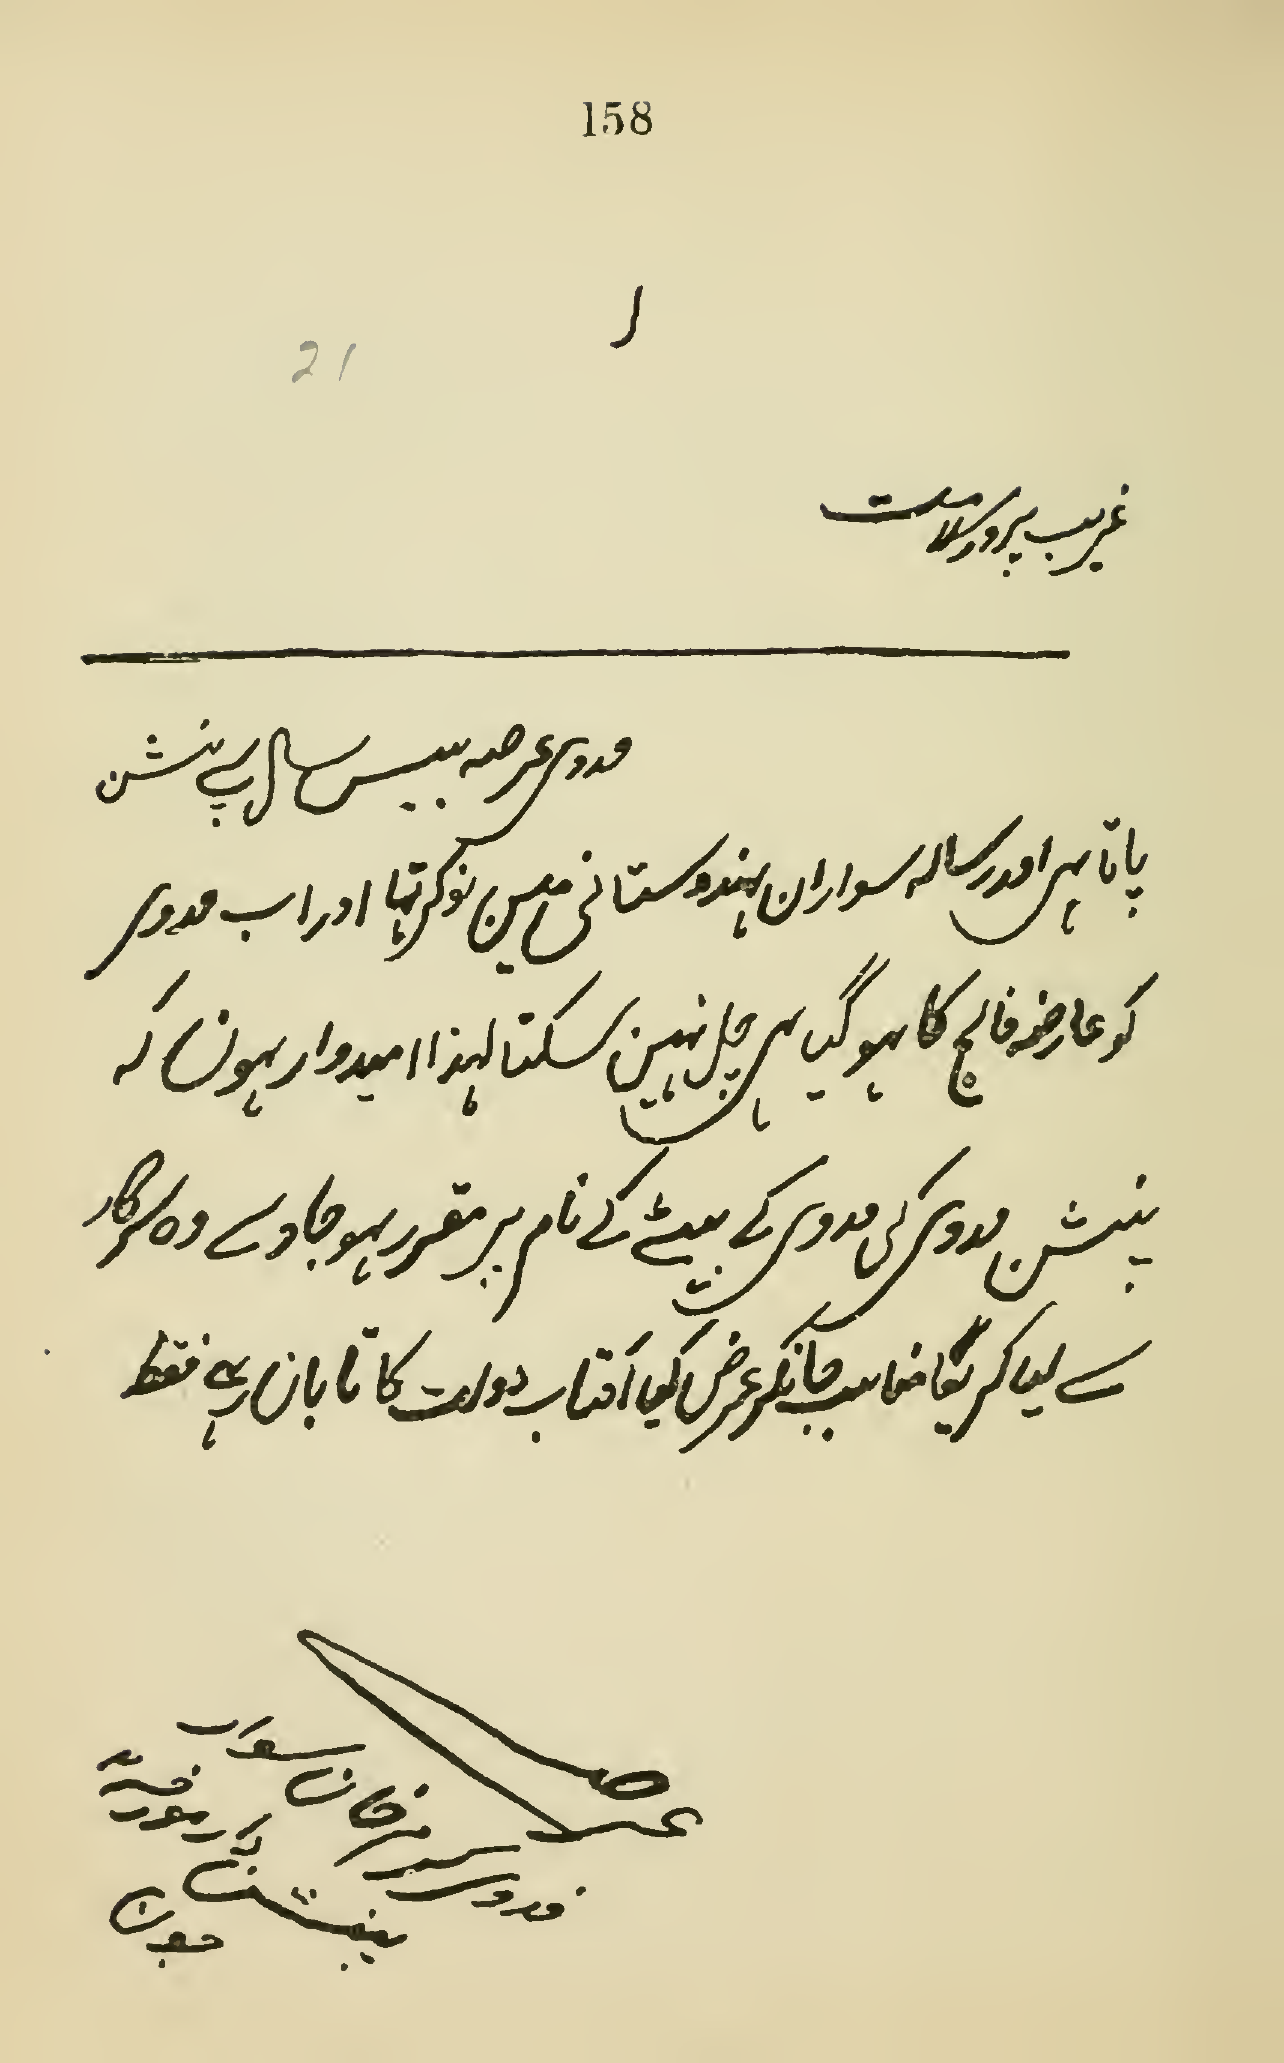 158
۱
21
غریب پرور سلامت
فدوی عرصہ بیس سال سے پنشن
پاتا ہی اور رسالہ سواران ہندوستانی مین نوکر تہا اور اب فدوی
کو عارضہ فالج کا ہو گیا ہی چل نہین سکتا لہذا امیدوار ہون کہ
پنشن فدوی کی فدوی کے بیٹے کے نام پر مقرر ہو جاوے وہ سرکار
سے لیا کریگا مناسب جانکر عرض کیا آفتاب دولت کا تابان رہے فقط
عرضے
فدوی خان سوار
پنشن دار مورخہ
جون